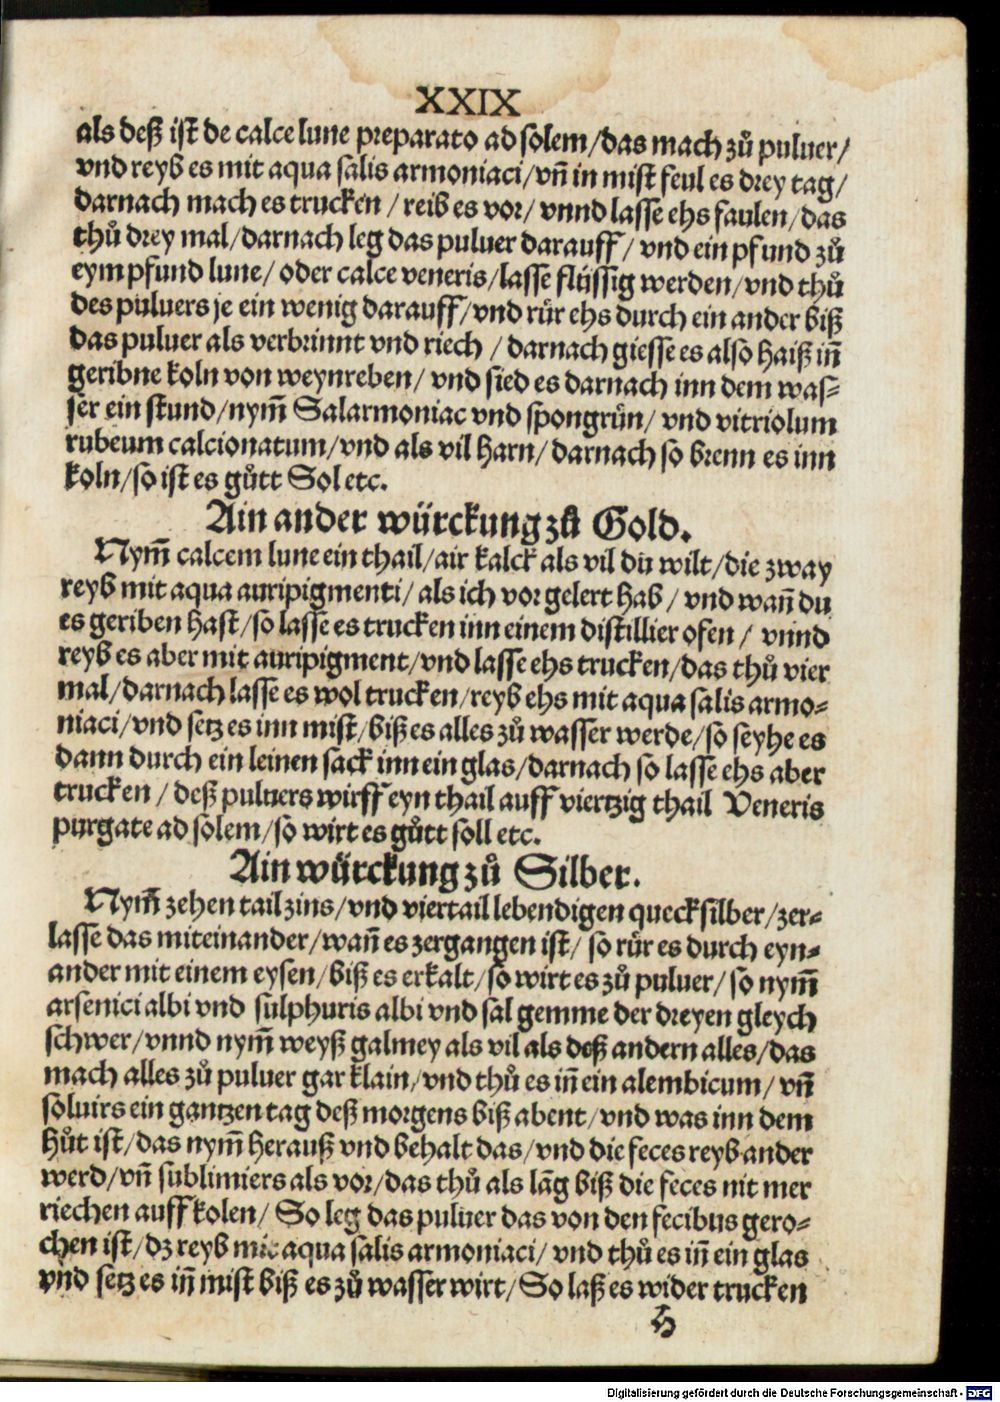 XXIX
als deß ist de calce lune preparato ad solem/das mach zů puluer/
vnd reyb es mit aqua salis armoniaci/vñ in mist feul es drey tag/
darnach mach es trucken / reib es vor/ vnnd lasse ehs faulen/das
thů drey mal/darnach leg das puluer darauff/ vnd ein pfund zů
eym pfund lune/ oder calce veneris/lasse flüssig werden/vnd thů
des puluers je ein wenig darauff/vnd rür ehs durch ein ander biß
das puluer als verbrinnt vnd riech / darnach giesse es also haiß iñ
geribne koln von weynreben/ vnd sied es darnach inn dem was⸗
ser ein stund/nym̃ Salarmoniac vnd spongrün/ vnd vitriolum
rubeum calcionatum/vnd als vil harn/darnach so brenn es inn
koln/so ist es gůtt Sol etc.
Ain ander würckung zů Gold.
Nym̃ calcem lune ein thail/air kalck als vil du wilt/die zway
reyb mit aqua auripigmenti/ als ich vor gelert hab / vnd wañ du
es geriben hast/so lasse es trucken inn einem distillier ofen / vnnd
reyb es aber mit auripigment/vnd lasse ehs trucken/das thů vier
mal/darnach lasse es wol trucken/reyb ehs mit aqua salis armo⸗
niaci/vnd setz es inn mist/biß es alles zů wasser werde/so seyhe es
dann durch ein leinen sack inn ein glas/darnach so lasse ehs aber
trucken / deß puluers wirff eyn thail auff viertzig thail Veneris
purgate ad solem/so wirt es gůtt soll etc.
Ain würckung zů Silber.
Nym̃ zehen tail zins/vnd viertail lebendigen quecksilber/zer⸗
lasse das miteinander/wañ es zergangen ist/ so rür es durch eyn⸗
ander mit einem eysen/biß es erkalt/so wirt es zů puluer/so nym̃
arsenici albi vnd sulphuris albi vnd sal gemme der dreyen gleych
schwer/vnnd nym̃ weyß galmey als vil als deß andern alles/das
mach alles zů puluer gar klain/vnd thů es iñ ein alembicum/ vñ
soluirs ein gantzen tag deß morgens biß abent/vnd was inn dem
hůt ist/das nym̃ herauß vnd behalt das/vnd die feces reyb ander
werd/vñ sublimiers als vor/das thů als lãg biß die feces nit mer
riechen auff kolen/ So leg das puluer das von den fecibus gero⸗
chen ist/dz reyb mit aqua salis armoniaci/ vnd thů es iñ ein glas
vnd setz es iñ mist biß es zů wasser wirt/So laß es wider trucken
H
Digitalisierung gefördert durch die Deutsche Forschungsgemeinschaft - DFG